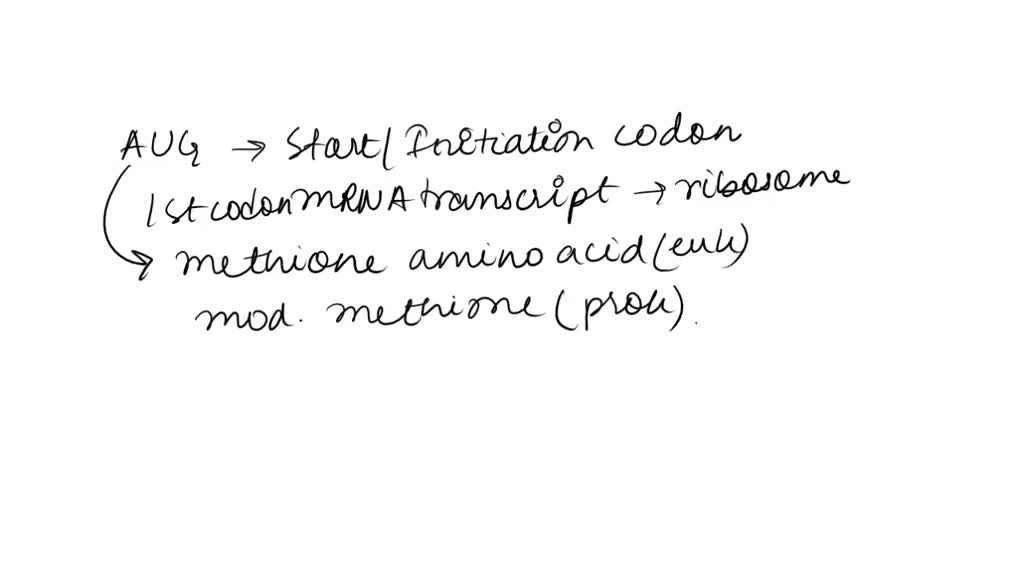 AUG → Start/Initiation codon
1st codon mRNA transcript → ribosome
methione amino acid (euk)
mod. methione (prok).